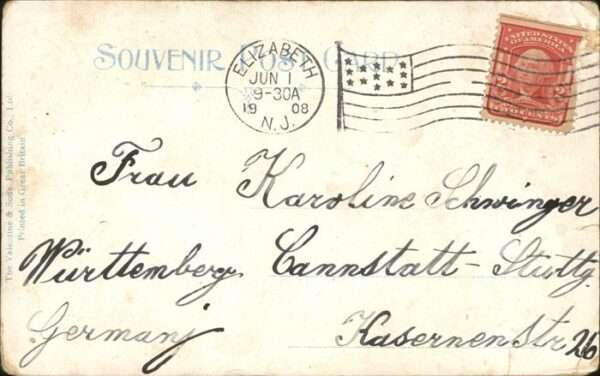 SOUVENIR POST CARD
ELIZABETH
JUN 1
9-30A
1908
N.J.
UNITED STATES
OF AMERICA
2 2
TWO CENTS
The Valentine & Sons Publishing Co., Ltd.
Printed in Great Britain
Frau Karoline Schwinger
Württemberg Cannstatt-Stuttg
Germanj Kasernenstr 26